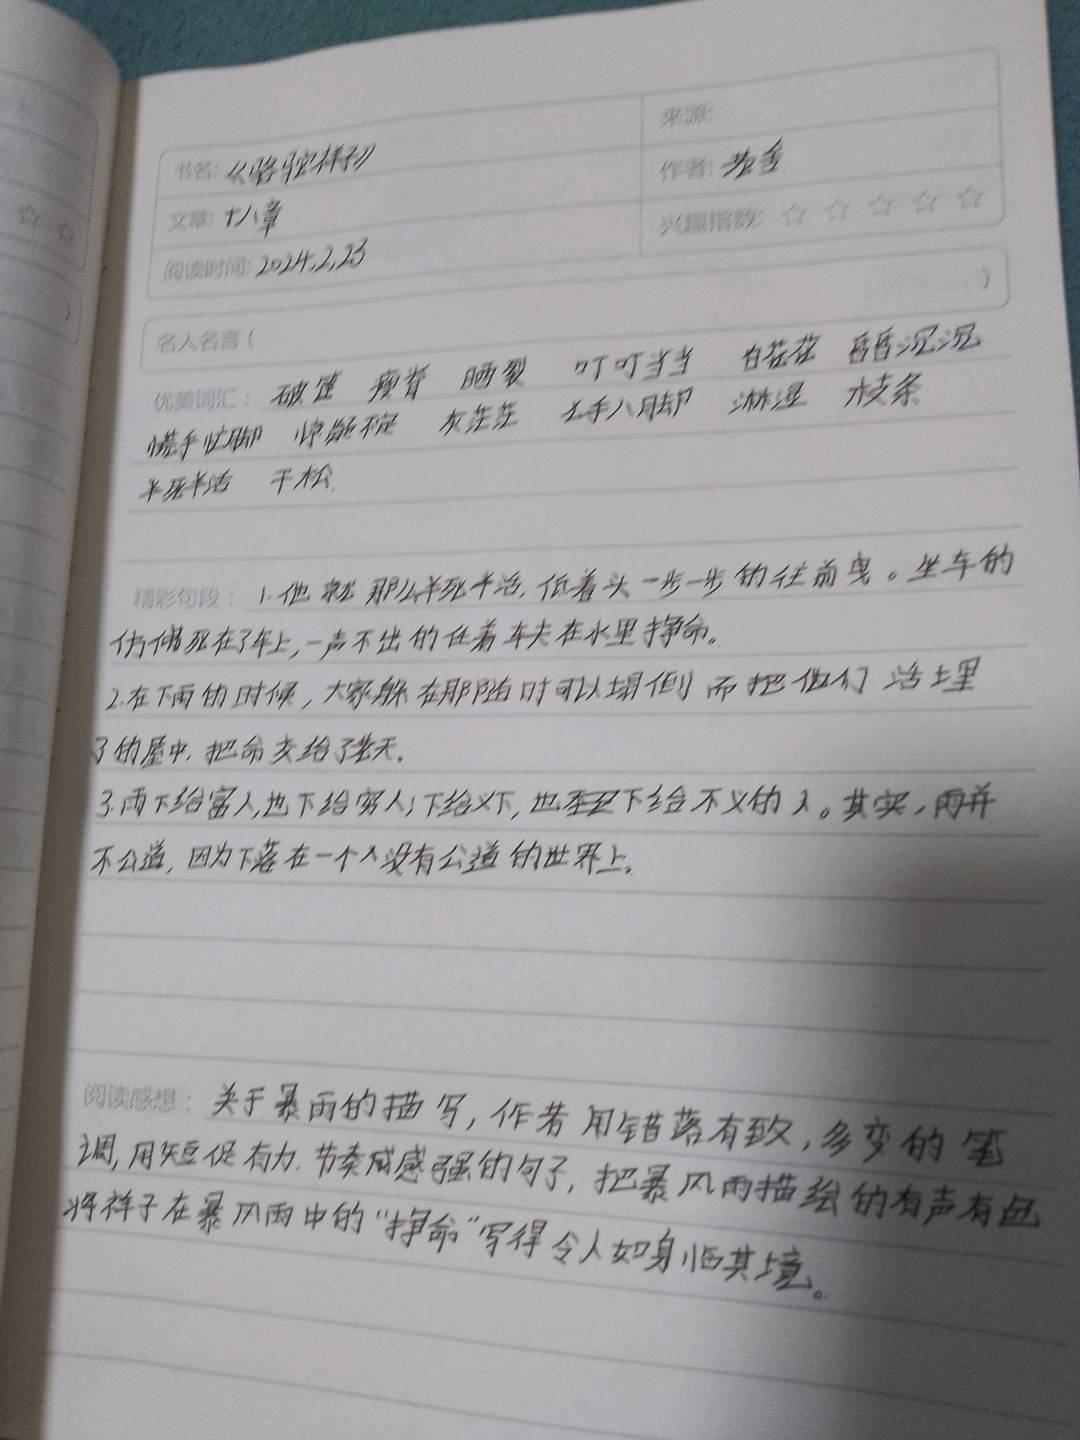 来源:
书名: 《骆驼祥子》
作者: 老舍
文章: 十八章
兴趣指数: ☆ ☆ ☆ ☆ ☆
阅读时间: 2024.2.23
名人名言 ( )
优美词汇: 破筐 瘦脊 晒裂 叮叮当当 白茫茫 昏昏沉沉
慌手忙脚 惊疑不定 灰茫茫 七手八脚 淋湿 枝条
半死半活 干松
精彩句段: 1.他就那么半死半活,低着头一步一步的往前曳。坐车的
仿佛死在了车上,一声不出的任着车夫在水里挣命。
2.在下雨的时候,大家躲在那随时可以塌倒而把他们活埋
了的屋中,把命交给了老天。
3.雨下给富人,也下给穷人;下给义下,也下给不义的人。其实,雨并
不公道,因为下落在一个人没有公道的世界上。
阅读感想: 关于暴雨的描写,作者用错落有致,多变的笔
调,用短促有力.节奏感强的句子,把暴风雨描绘的有声有色
将祥子在暴风雨中的“挣命”写得令人如身临其境。